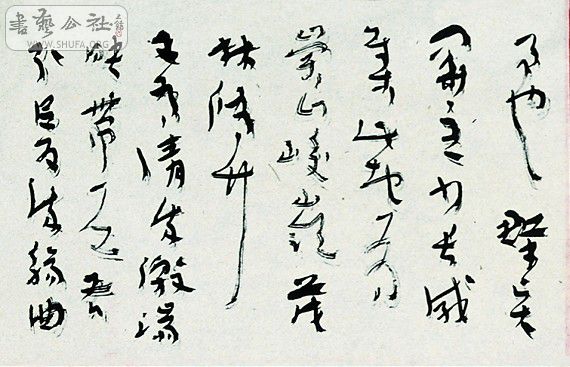 書藝公社
WWW.SHUFA.ORG
事也群賢
畢至少長咸
集此地有
崇山峻嶺茂
林脩竹
又有清流激湍
映帶左右
引以為流觴曲